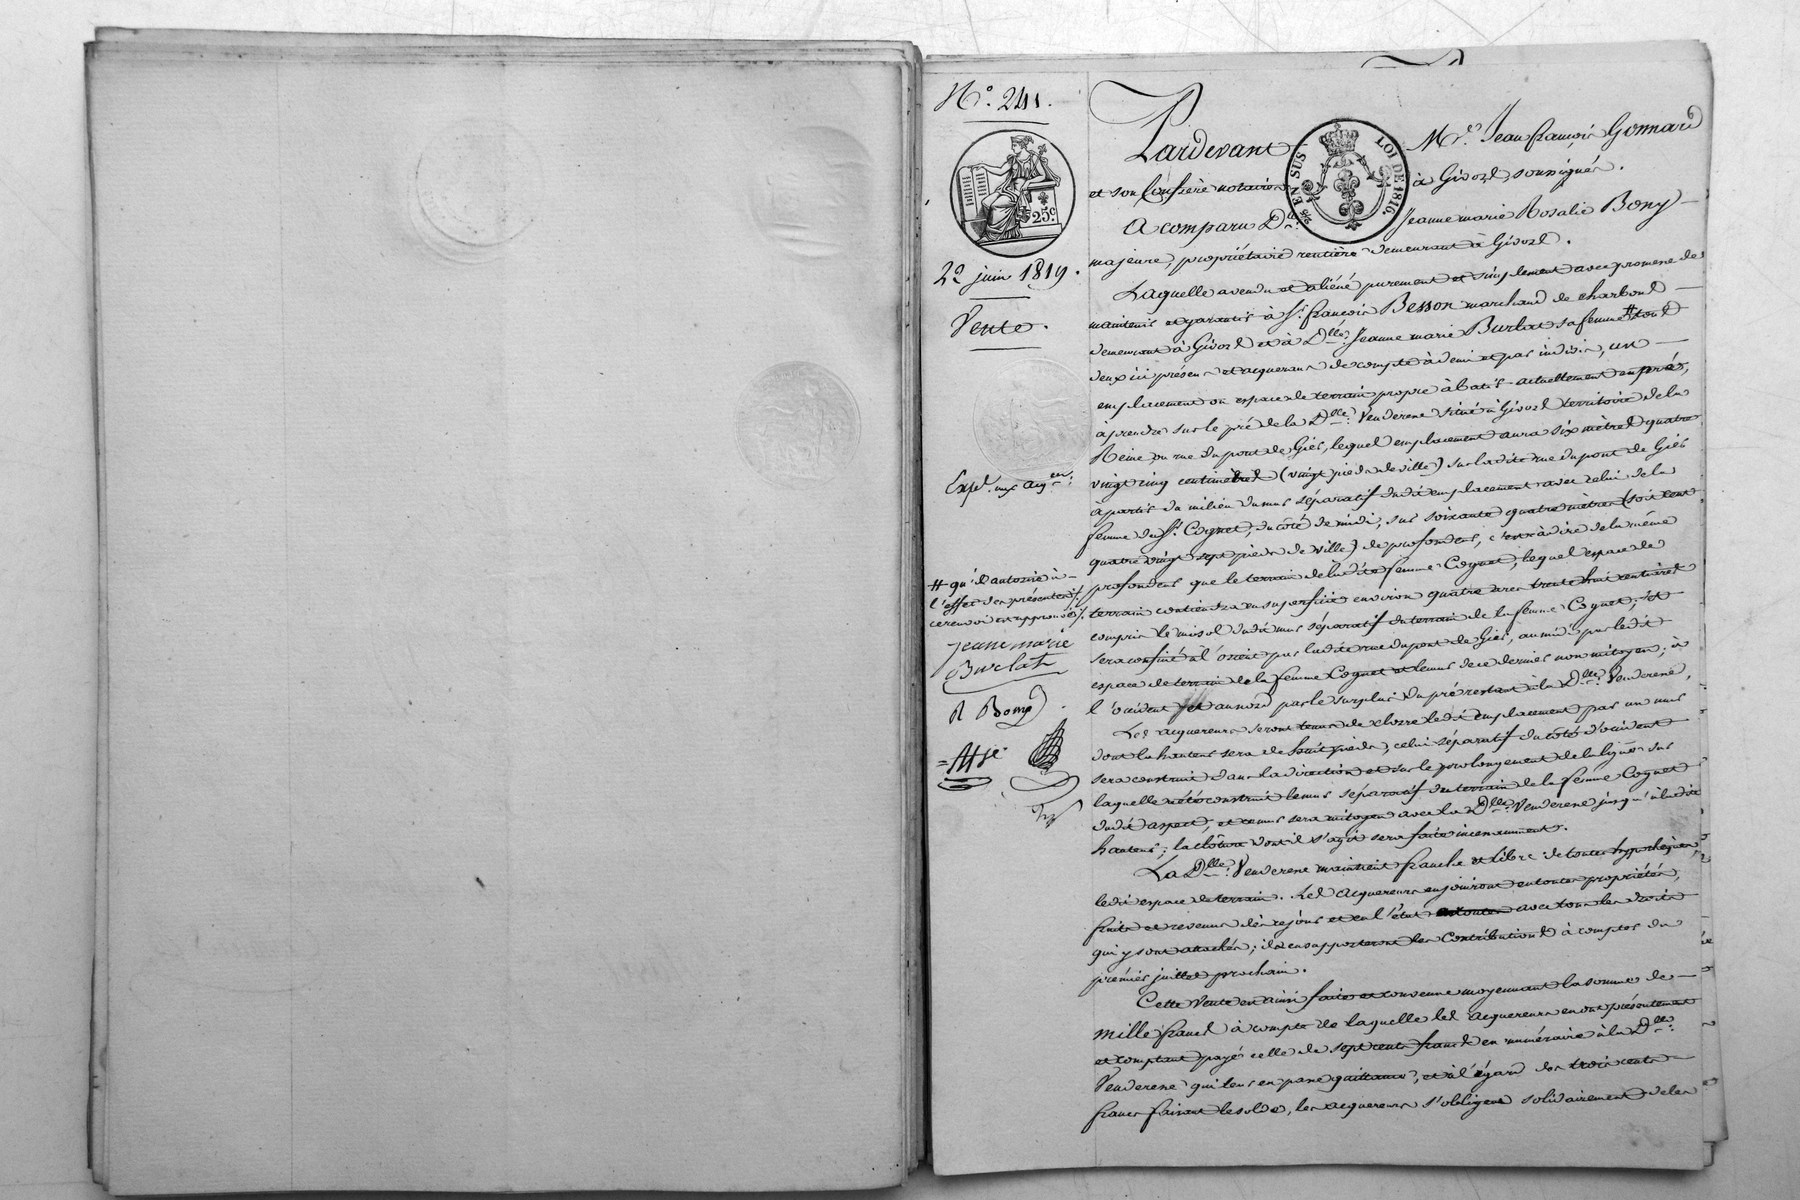 N.° 241.
25.c
22 juin 1819.
Vente.
Exp.d aux acq.en
# qu'il autorise à
l'effet des présentes ;
ce renvoi est approuvé ;
jeanne marie
Burlat
R Bony
Pardevant M.e Jean françois Gonnard
EN SUS LOI DE 1816.
et son Confrère notaires à Givors, soussignés.
A comparu D.lle Jeanne marie Rosalie Bony
majeure, propriétaire rentière demeurant à Givors.
Laquelle a vendu et aliéné purement et simplement avec promesse de
maintenir et garantir à S.r françois Besson marchand de charbons
demeurant à Givors et à D.lle Jeanne marie Burlat sa femme # tous
deux ici présens et acquerans de compte à demi et par indivis, un
emplacement ou espace de terrain propre à batir actuellement en pré,
à prendre sur le pré de la D.lle Venderesse situé à Givors territoire de la
Reine ou rue du pont de Gier, lequel emplacement aura six mètres quatre
vingt cinq centimètres (vingt pieds de ville) sur ladite rue du pont de Gier
à partir du milieu du mur séparatif dudit emplacement avec celui de la
femme du S.r Cognet, du côté de midi, sur soixante quatre mètres (soit cent
quatre vingt sept pieds de ville) de profondeur, c'est à dire de la même
profondeur que le terrain de ladite femme Cognet, lequel espace de
terrain contiendra en superficie environ quatre ares trente huit centiares
compris le misol dudit mur séparatif du terrain de la femme Cognet, et
sera confiné à l'orient par ladite rue du pont de Gier, au midi par ledit
espace de terrain de la femme Cognet et le mur de ce dernier non mitoyen ; à
l'occident et au nord par le surplus du pré restant à la D.lle Venderesse,
Les acquereurs seront tenus de clorre ledit emplacement par un mur
dont la hauteur sera de huit pieds ; celui séparatif du côté d'occident
sera construit dans la direction et sur le prolongement de la ligne sur
laquelle a été construit le mur séparatif du terrain de la femme Cognet
dudit aspect, et ce mur sera mitoyen avec la D.lle Venderesse jusqu'à ladite
hauteur ; la clôture dont il s'agit sera faite incessamment.
La D.lle Venderesse maintient franche et libre de toutes hypothèques,
ledit espace de terrain. Les acquereurs en jouiront en toutes propriétés,
fruits et revenus dès ce jour et en l'état avec tous les droits
qui y sont attachés ; ils en supporteront les Contributions à compter du
premier juillet prochain.
Cette Vente est ainsi faite et convenue moyennant la somme de
mille francs à compte de laquelle les acquereurs en ont présentement
et comptant payé celle de sept cents francs en numéraire à la D.lle
Venderesse qui leur en passe quittance, et à l'égard des trois cents
francs faisant le solde, les acquereurs s'obligent solidairement de les